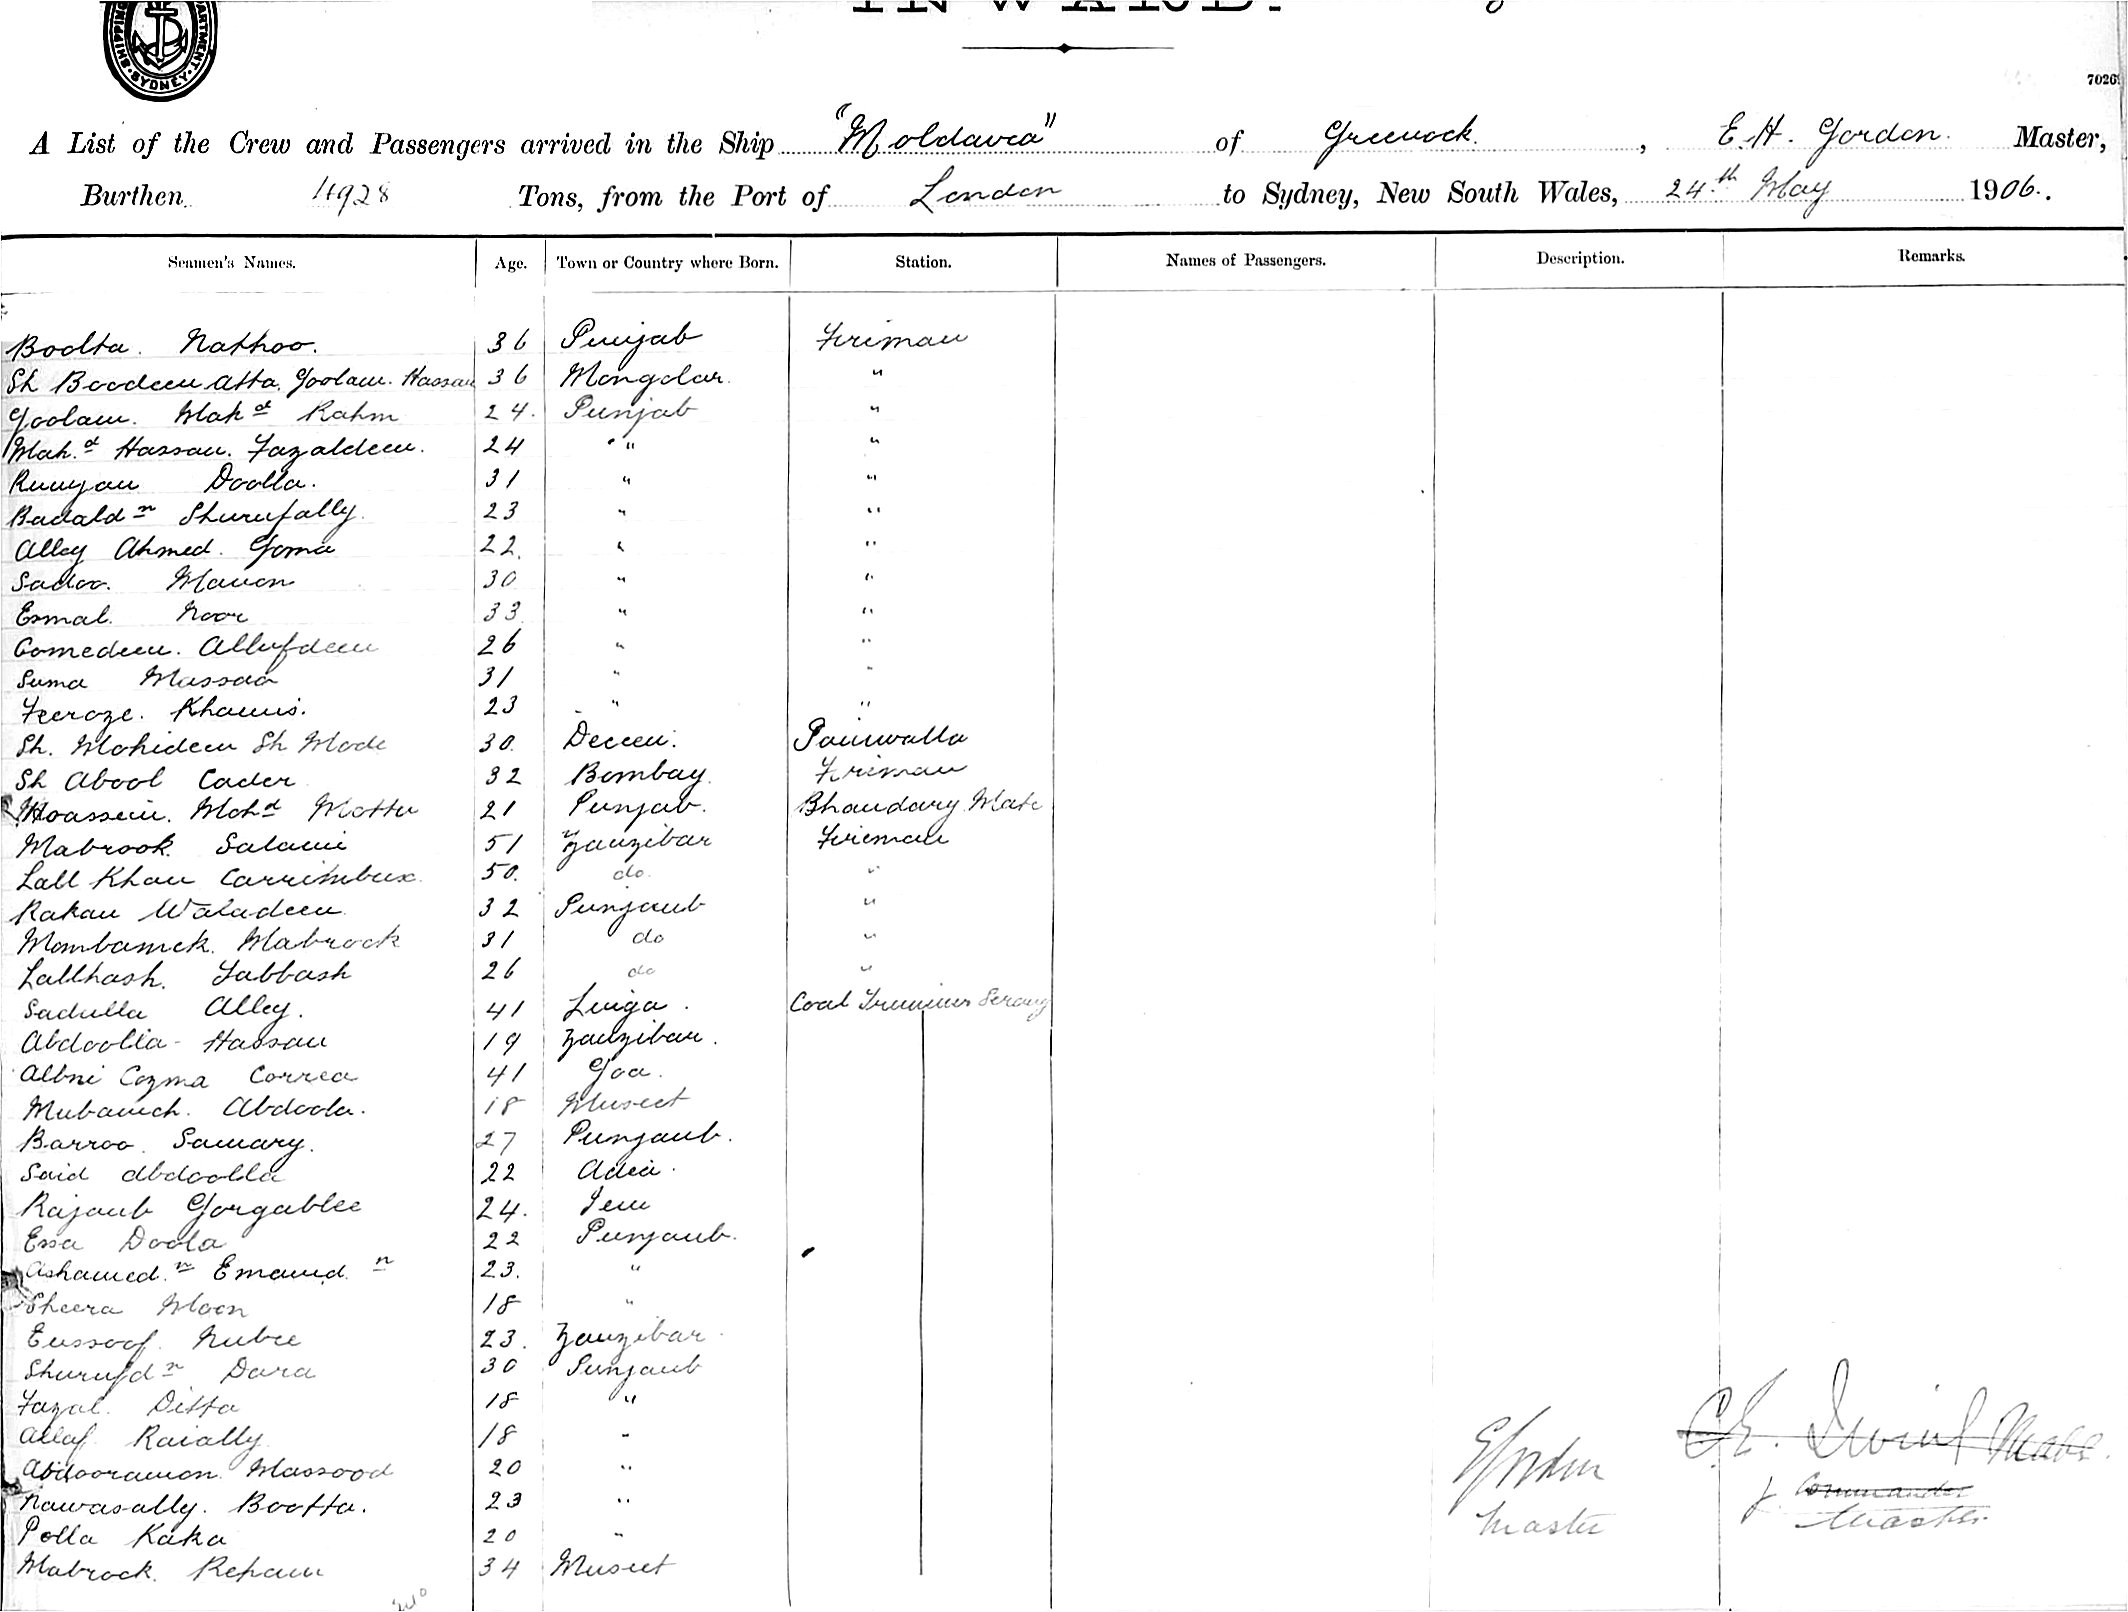 INWARD.
SHIPPING DEPARTMENT. SYDNEY.
7026
A List of the Crew and Passengers arrived in the Ship "Moldavia" of Greenock, E. H. Gordon. Master,
Burthen 4928 Tons, from the Port of London to Sydney, New South Wales, 24th May 1906.
Seamen's Names. Age. Town or Country where Born. Station. Names of Passengers. Description. Remarks.
Bootta. Nathoo. 36 Punjab Fireman
Sh Boodeen Atta. Goolam. Hassan 36 Mongolar. "
Goolam. Mahd Rahm 24. Punjab "
Mahd Hassan. Fazaldeen. 24 " "
Runyan Doolla. 31 " "
Badaldn Shurufally. 23 " "
Alley Ahmed. Goma 22. " "
Sadoo. Mauon 30 " "
Esmal. Noor 33 " "
Comedeen. Allufdeen 26 " "
Suma Massoa 31 " "
Feeroze. Khamis. 23 " "
Sh. Mohideen Sh Mode 30. Deccen. Paniwalla
Sh Abool Cader 32 Bombay. Fireman
Hoassein. Mohd Mottu 21 Punjab. Bhandary Mate
Mabrook Salami 51 Zanzibar Fireman
Lall Khan Carrimbux. 50. do. "
Rakan Waladeen 32 Punjaub "
Mombamek. Mabrook 31 do "
Lallhash. Jabbash 26 do "
Sadulla Alley. 41 Linga. Coal Trimmers Serang
Abdoolla Hassan 19 Zanzibar.
Albni Cozma Correa 41 Goa.
Mubarich. Abdoola. 18 Muscet
Barroo. Samary. 27 Punjaub.
Said Abdoolla 22 Adin.
Rajaub Gorgablee 24.
Essa Doola 22 Punjaub.
Ashamed.n Emamd.n 23. "
Sheera Moon 18 "
Eussoof. Nubee 23. Zanzibar.
Shurufdn Dara 30 Punjaub
Fazal. Ditta 18 "
Allaf Raially 18 "
Abdooramon. Massood 20 "
Nawasally. Bootta. 23 "
Polla Kaka 20 "
Mabrook. Reham 34 Muscet
EGordon
Master
Mate.
f Commander
Master.